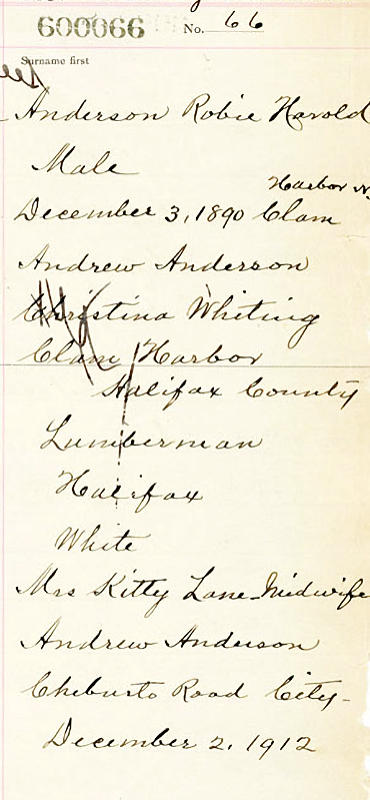 600066 No. 66
Surname first
Anderson Robie Harold
Male
Harbor N.
December 3, 1890 Clam
Andrew Anderson
Christina Whiting
Clam Harbor
Halifax County
Lumberman
Halifax
White
Mrs Kitty Lane - Midwife
Andrew Anderson
Chebucto Road City -
December 2, 1912